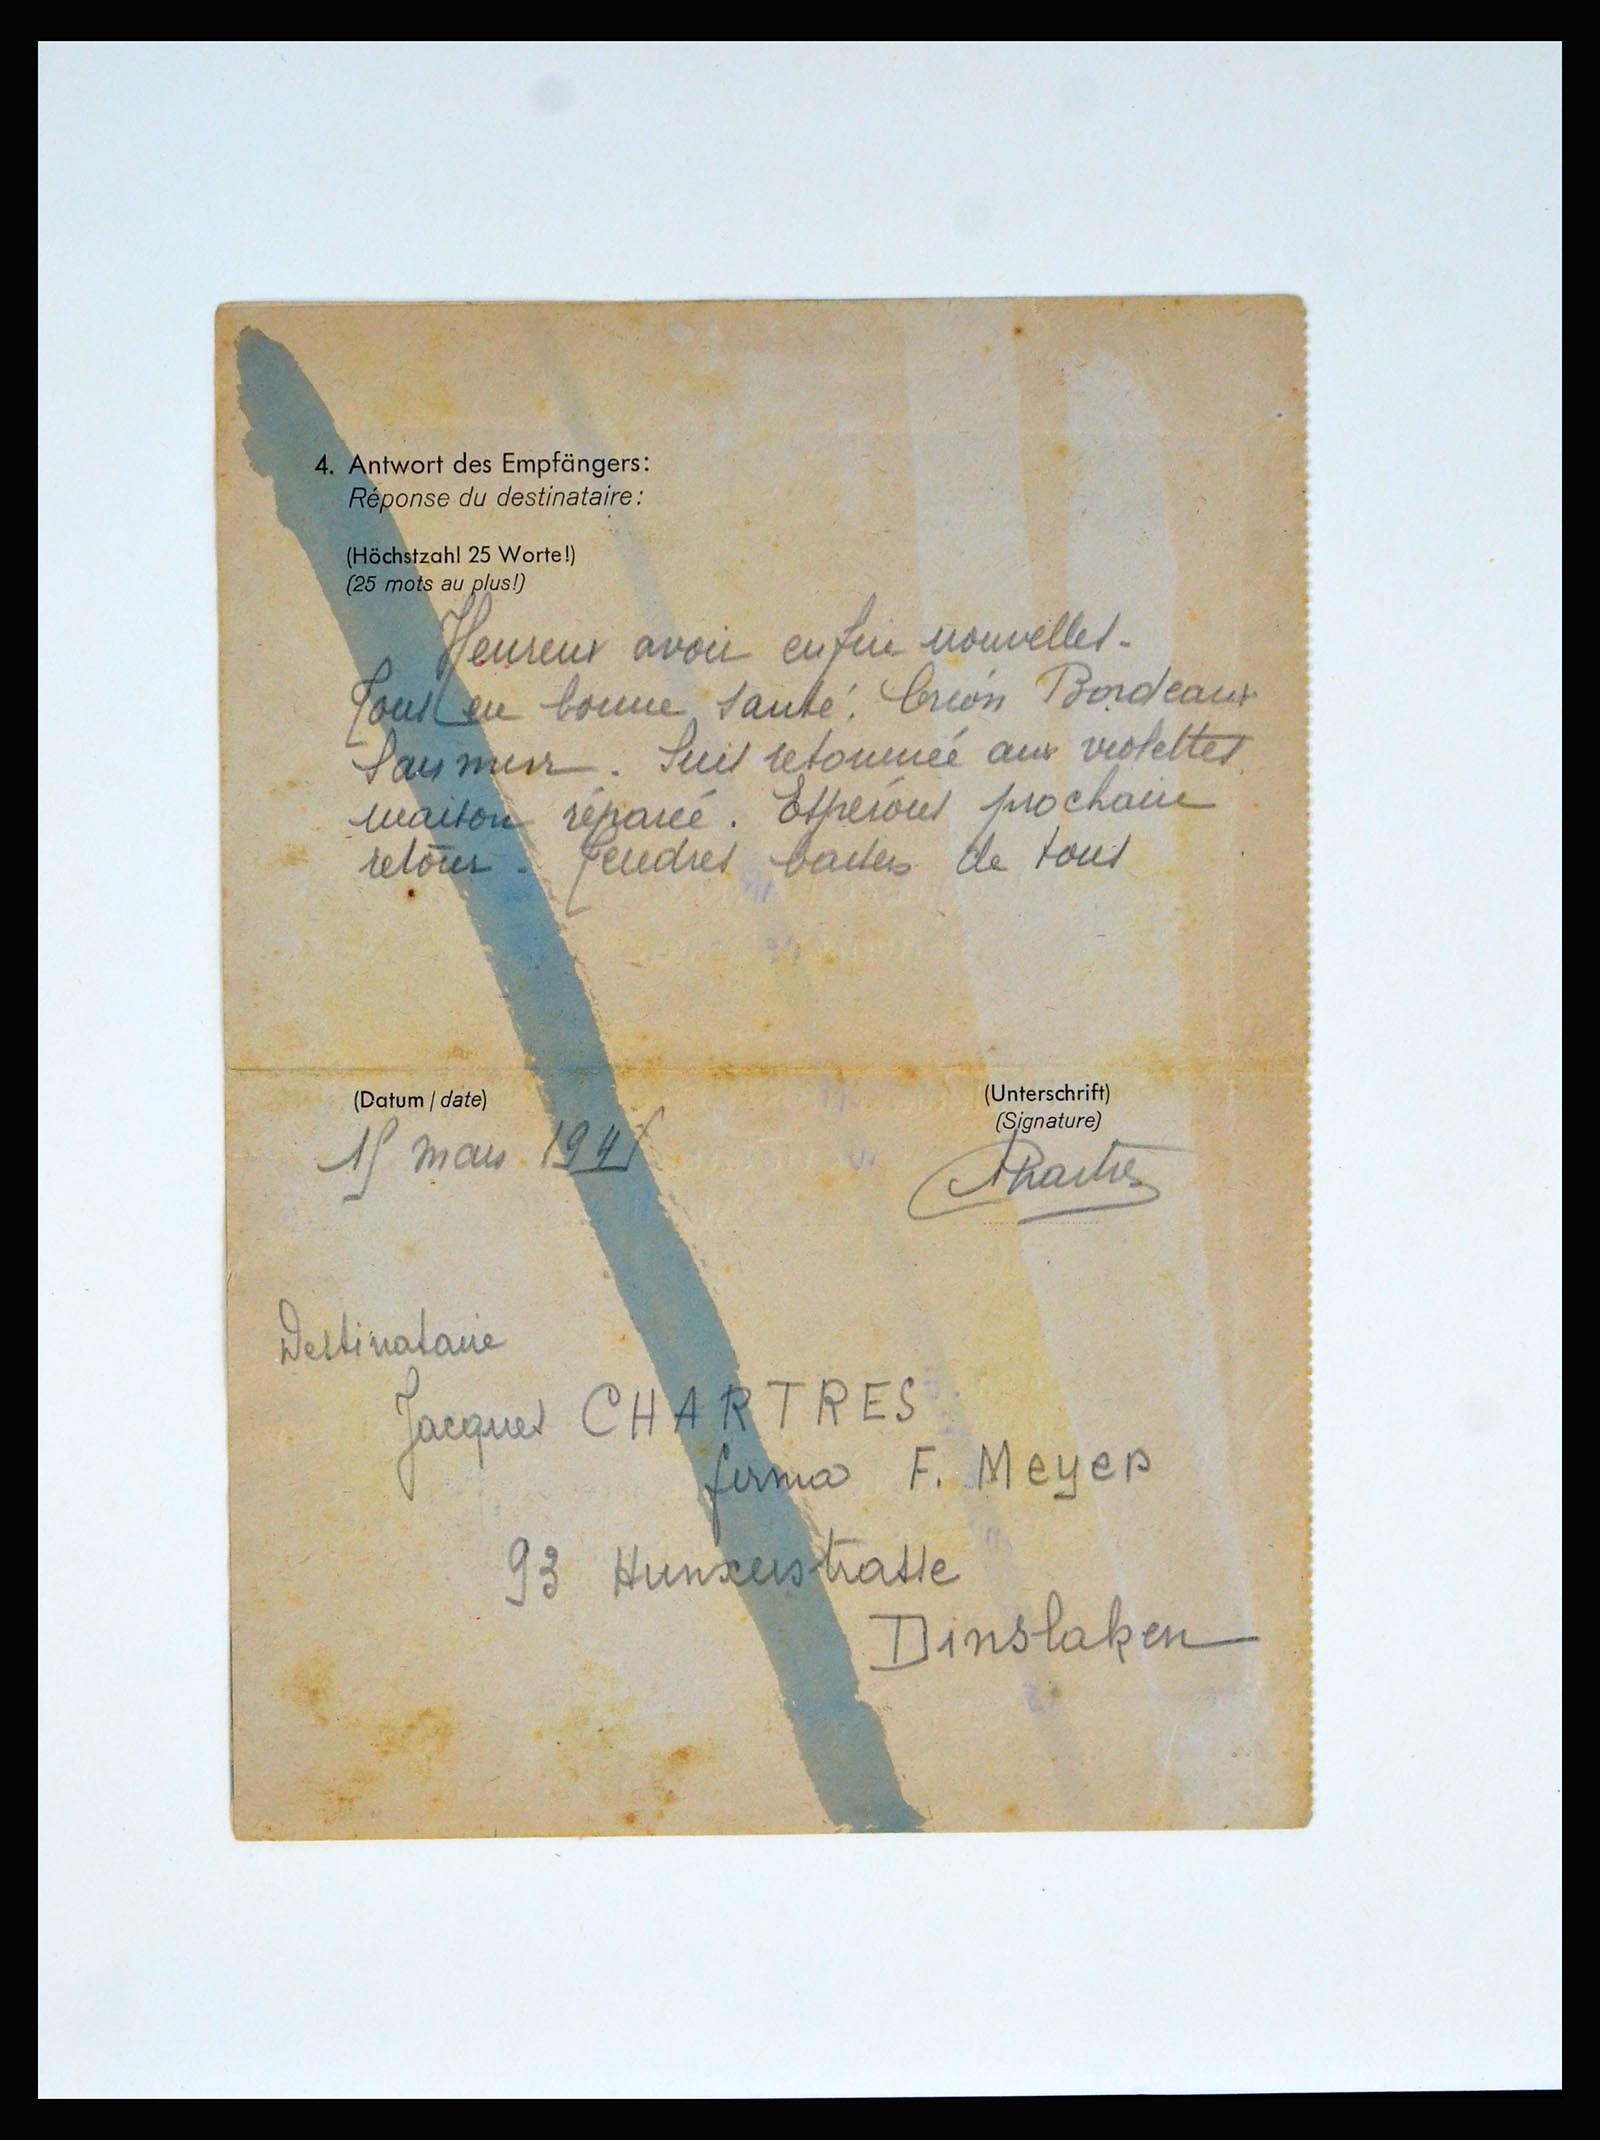 4. Antwort des Empfängers:
Réponse du destinataire:
(Höchstzahl 25 Worte!)
(25 mots au plus!)
Heureux avoir enfin nouvelles.
Tous en bonne santé. Bordeaux
Saumur. Suis retournée aux violettes
maison réparée. Espérons prochain
retour. Tendres baisers de tous
(Datum / date)
(Unterschrift)
(Signature)
15 mars 194
Chartres
Destinataire
Jacques CHARTRES
firma F. Meyer
93 Hunxerstrasse
Dinslaken